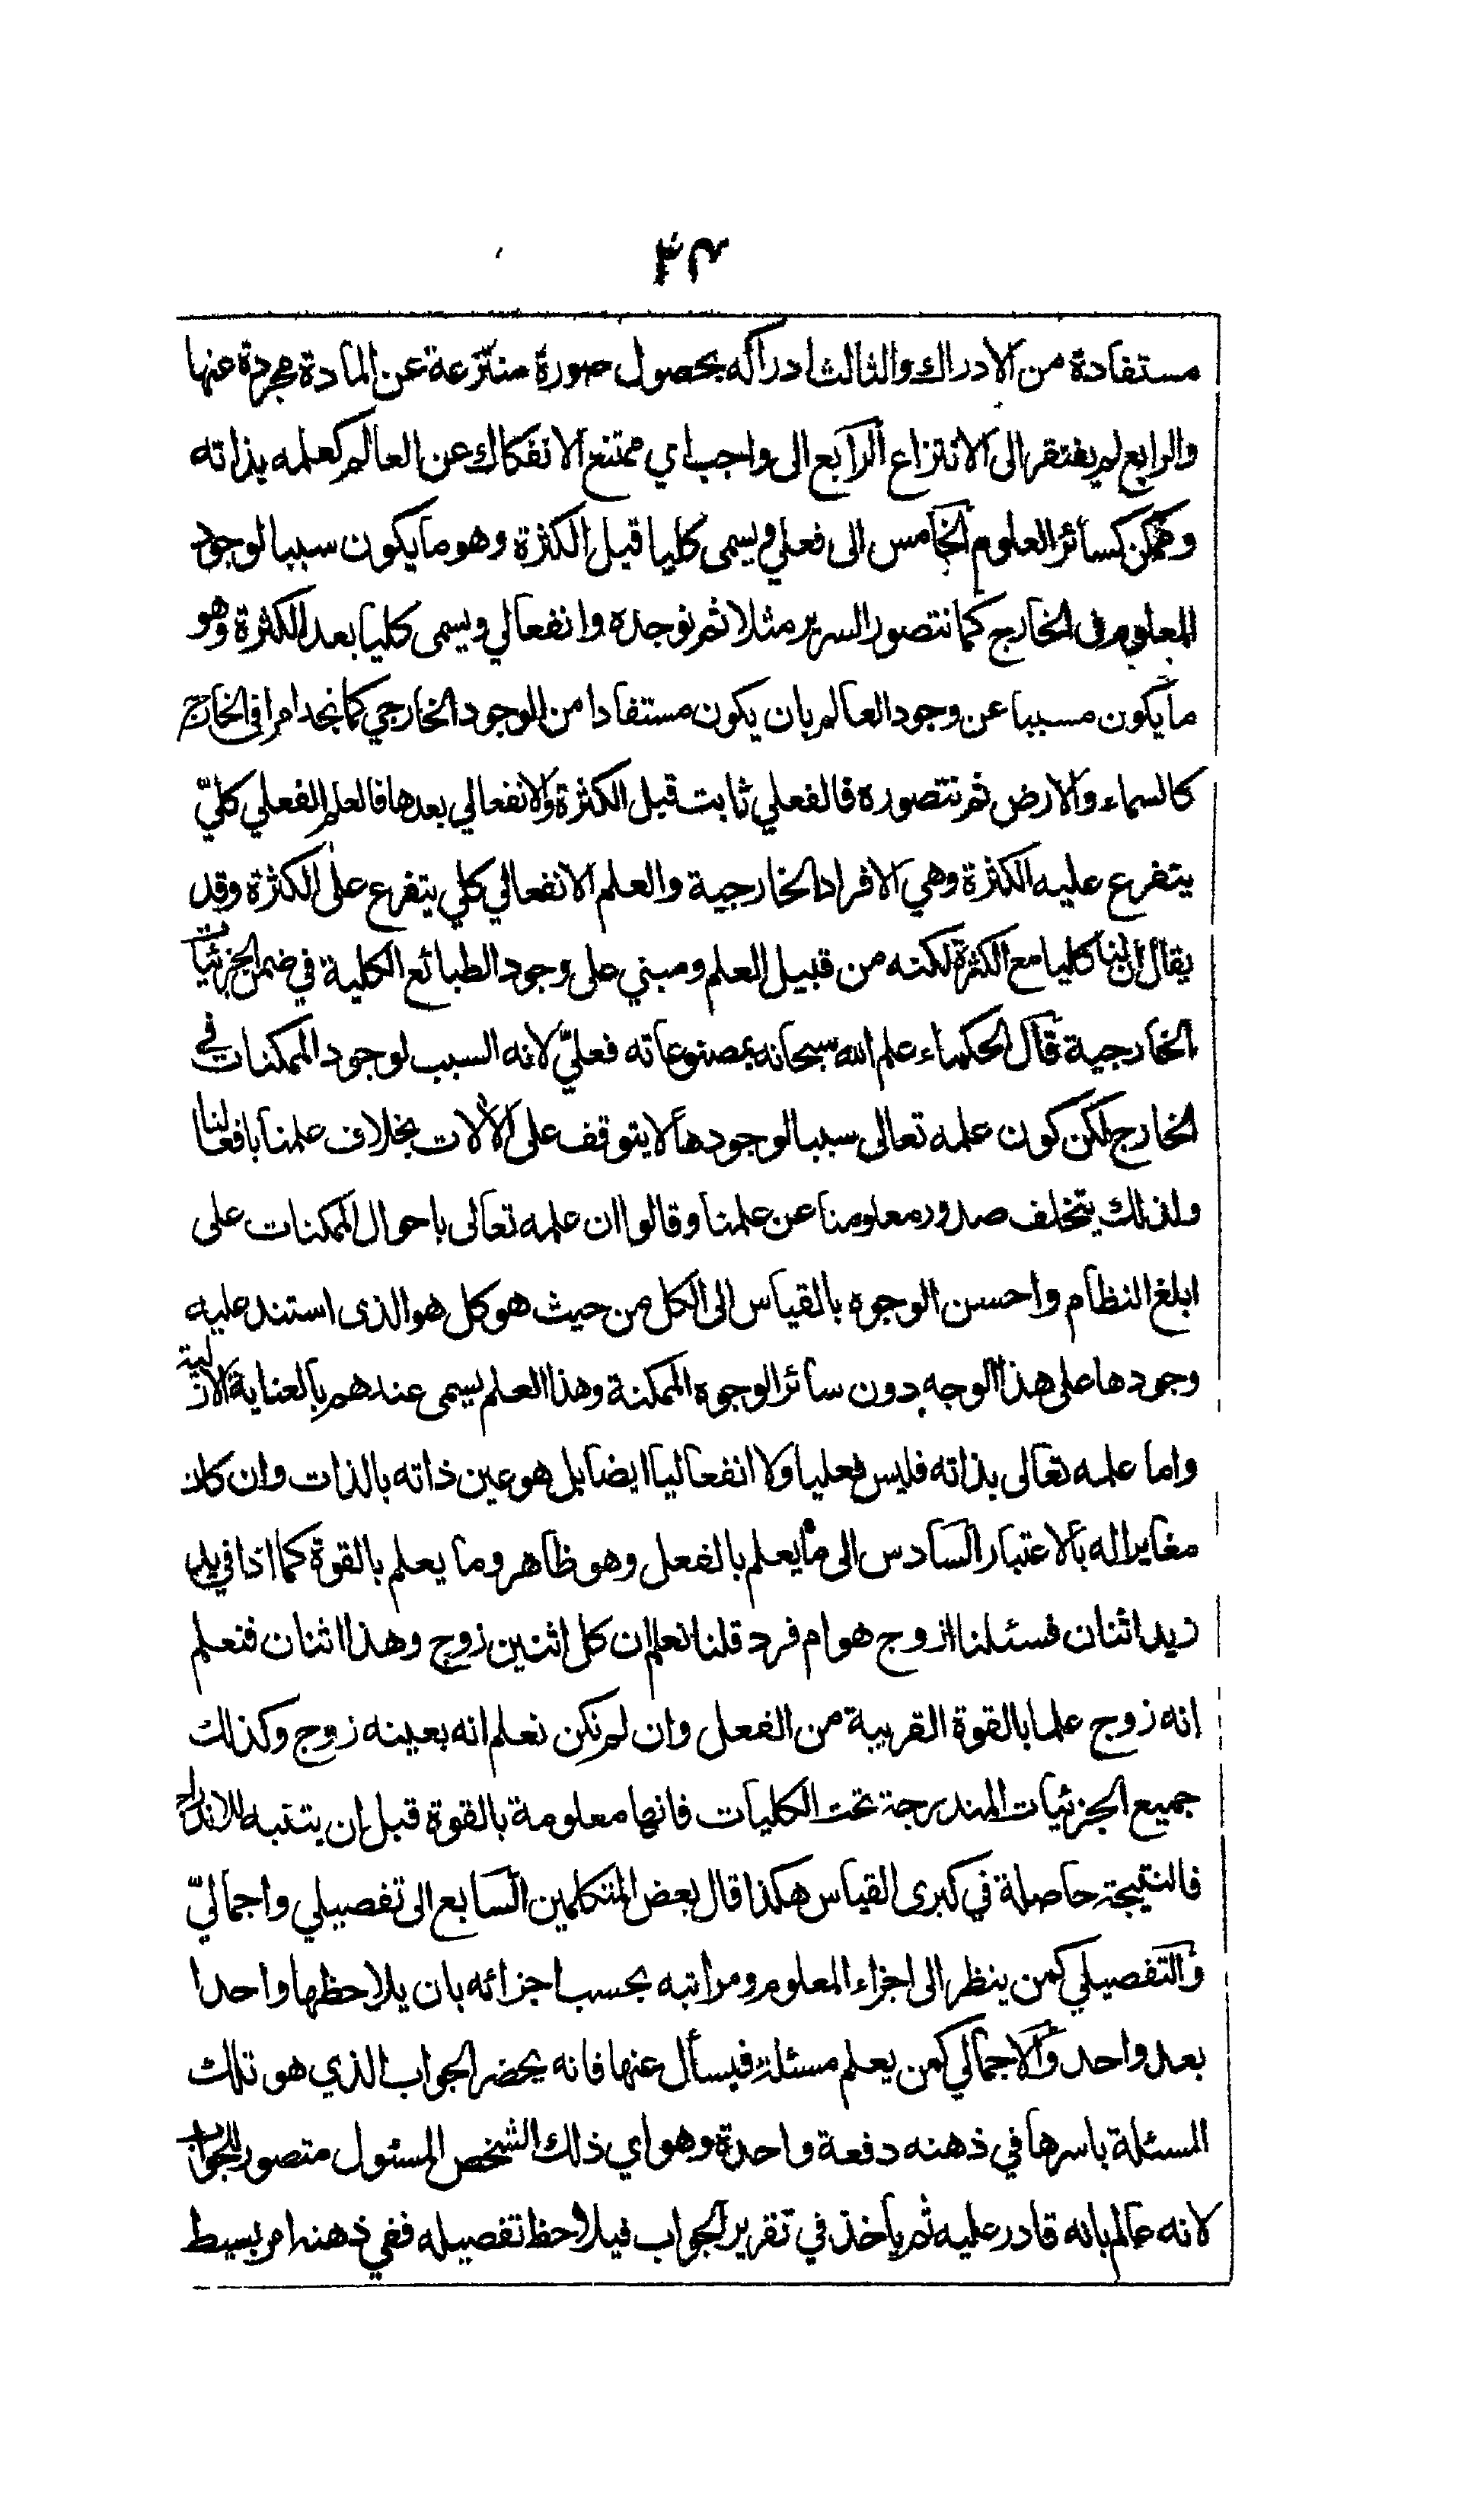 ٣٤
مستفادة من الادراك والثالث ادراكه بحصول صورة منتزعة عن المادة مجردة عنها
والرابع لم يفتقر الى الانتزاع الرابع الى واجب اي ممتنع الانفكاك عن العالم كعلمه بذاته
وممكن كسائر العلوم الخامس الى فعلي ويسمى كليا قبل الكثرة وهو ما يكون سببا لوجود
المعلوم في الخارج كما نتصور السرير مثلا ثم نوجده وانفعالي ويسمى كليا بعد الكثرة وهو
ما يكون مسببا عن وجود العالم بان يكون مستفادا من الوجود الخارجي كما نجد امرا في الخارج
كالسماء والارض ثم نتصوره فالفعلي ثابت قبل الكثرة والانفعالي بعدها فالعلم الفعلي كليّ
يتفرع عليه الكثرة وهي الافراد الخارجية والعلم الانفعالي كلي يتفرع على الكثرة وقد
يقال ان لنا كليا مع الكثرة لكنه من قبيل العلم ومبني على وجود الطبائع الكلية في ضمن الجزئيات
الخارجية قال الحكماء علم الله سبحانه بمصنوعاته فعليّ لانه السبب لوجود الممكنات في
الخارج لكن كون علمه تعالى سببا لوجودها لا يتوقف على الآلات بخلاف علمنا بافعالنا
ولذلك يتخلف صدور معلومنا عن علمنا وقالوا ان علمه تعالى باحوال الممكنات على
ابلغ النظام واحسن الوجوه بالقياس الى الكل من حيث هو كل هو الذى استند عليه
وجودها على هذا الوجه دون سائر الوجوه الممكنة وهذا العلم يسمى عندهم بالعناية الازلية
واما علمه تعالى بذاته فليس فعليا ولا انفعاليا ايضا بل هو عين ذاته بالذات وان كان
مغايرا له بالاعتبار السادس الى ما يعلم بالفعل وهو ظاهر وما يعلم بالقوة كما اذا في يد
زيد اثنان فسئلنا ازوج هو ام فرد قلنا نعلم ان كل اثنين زوج وهذا اثنان فنعلم
انه زوج علما بالقوة القريبة من الفعل وان لم نكن نعلم انه بعينه زوج وكذلك
جميع الجزئيات المندرجة تحت الكليات فانها معلومة بالقوة قبل ان يتنبه للاندراج
فالنتيجة حاصلة في كبرى القياس هكذا قال بعض المتكلمين السابع الى تفصيلي واجماليّ
والتفصيلي كمن ينظر الى اجزاء المعلوم ومراتبه بحسب اجزائه بان يلاحظها واحدا
بعد واحد والاجمالي كمن يعلم مسئلة فيسأل عنها فانه يحضر الجواب الذي هو تلك
المسئلة باسرها في ذهنه دفعة واحدة وهو اي ذلك الشخص المسئول متصور للجواب
لانه عالم بانه قادر عليه ثم ياخذ في تقرير الجواب فيلاحظ تفصيله ففي ذهنه امر بسيط